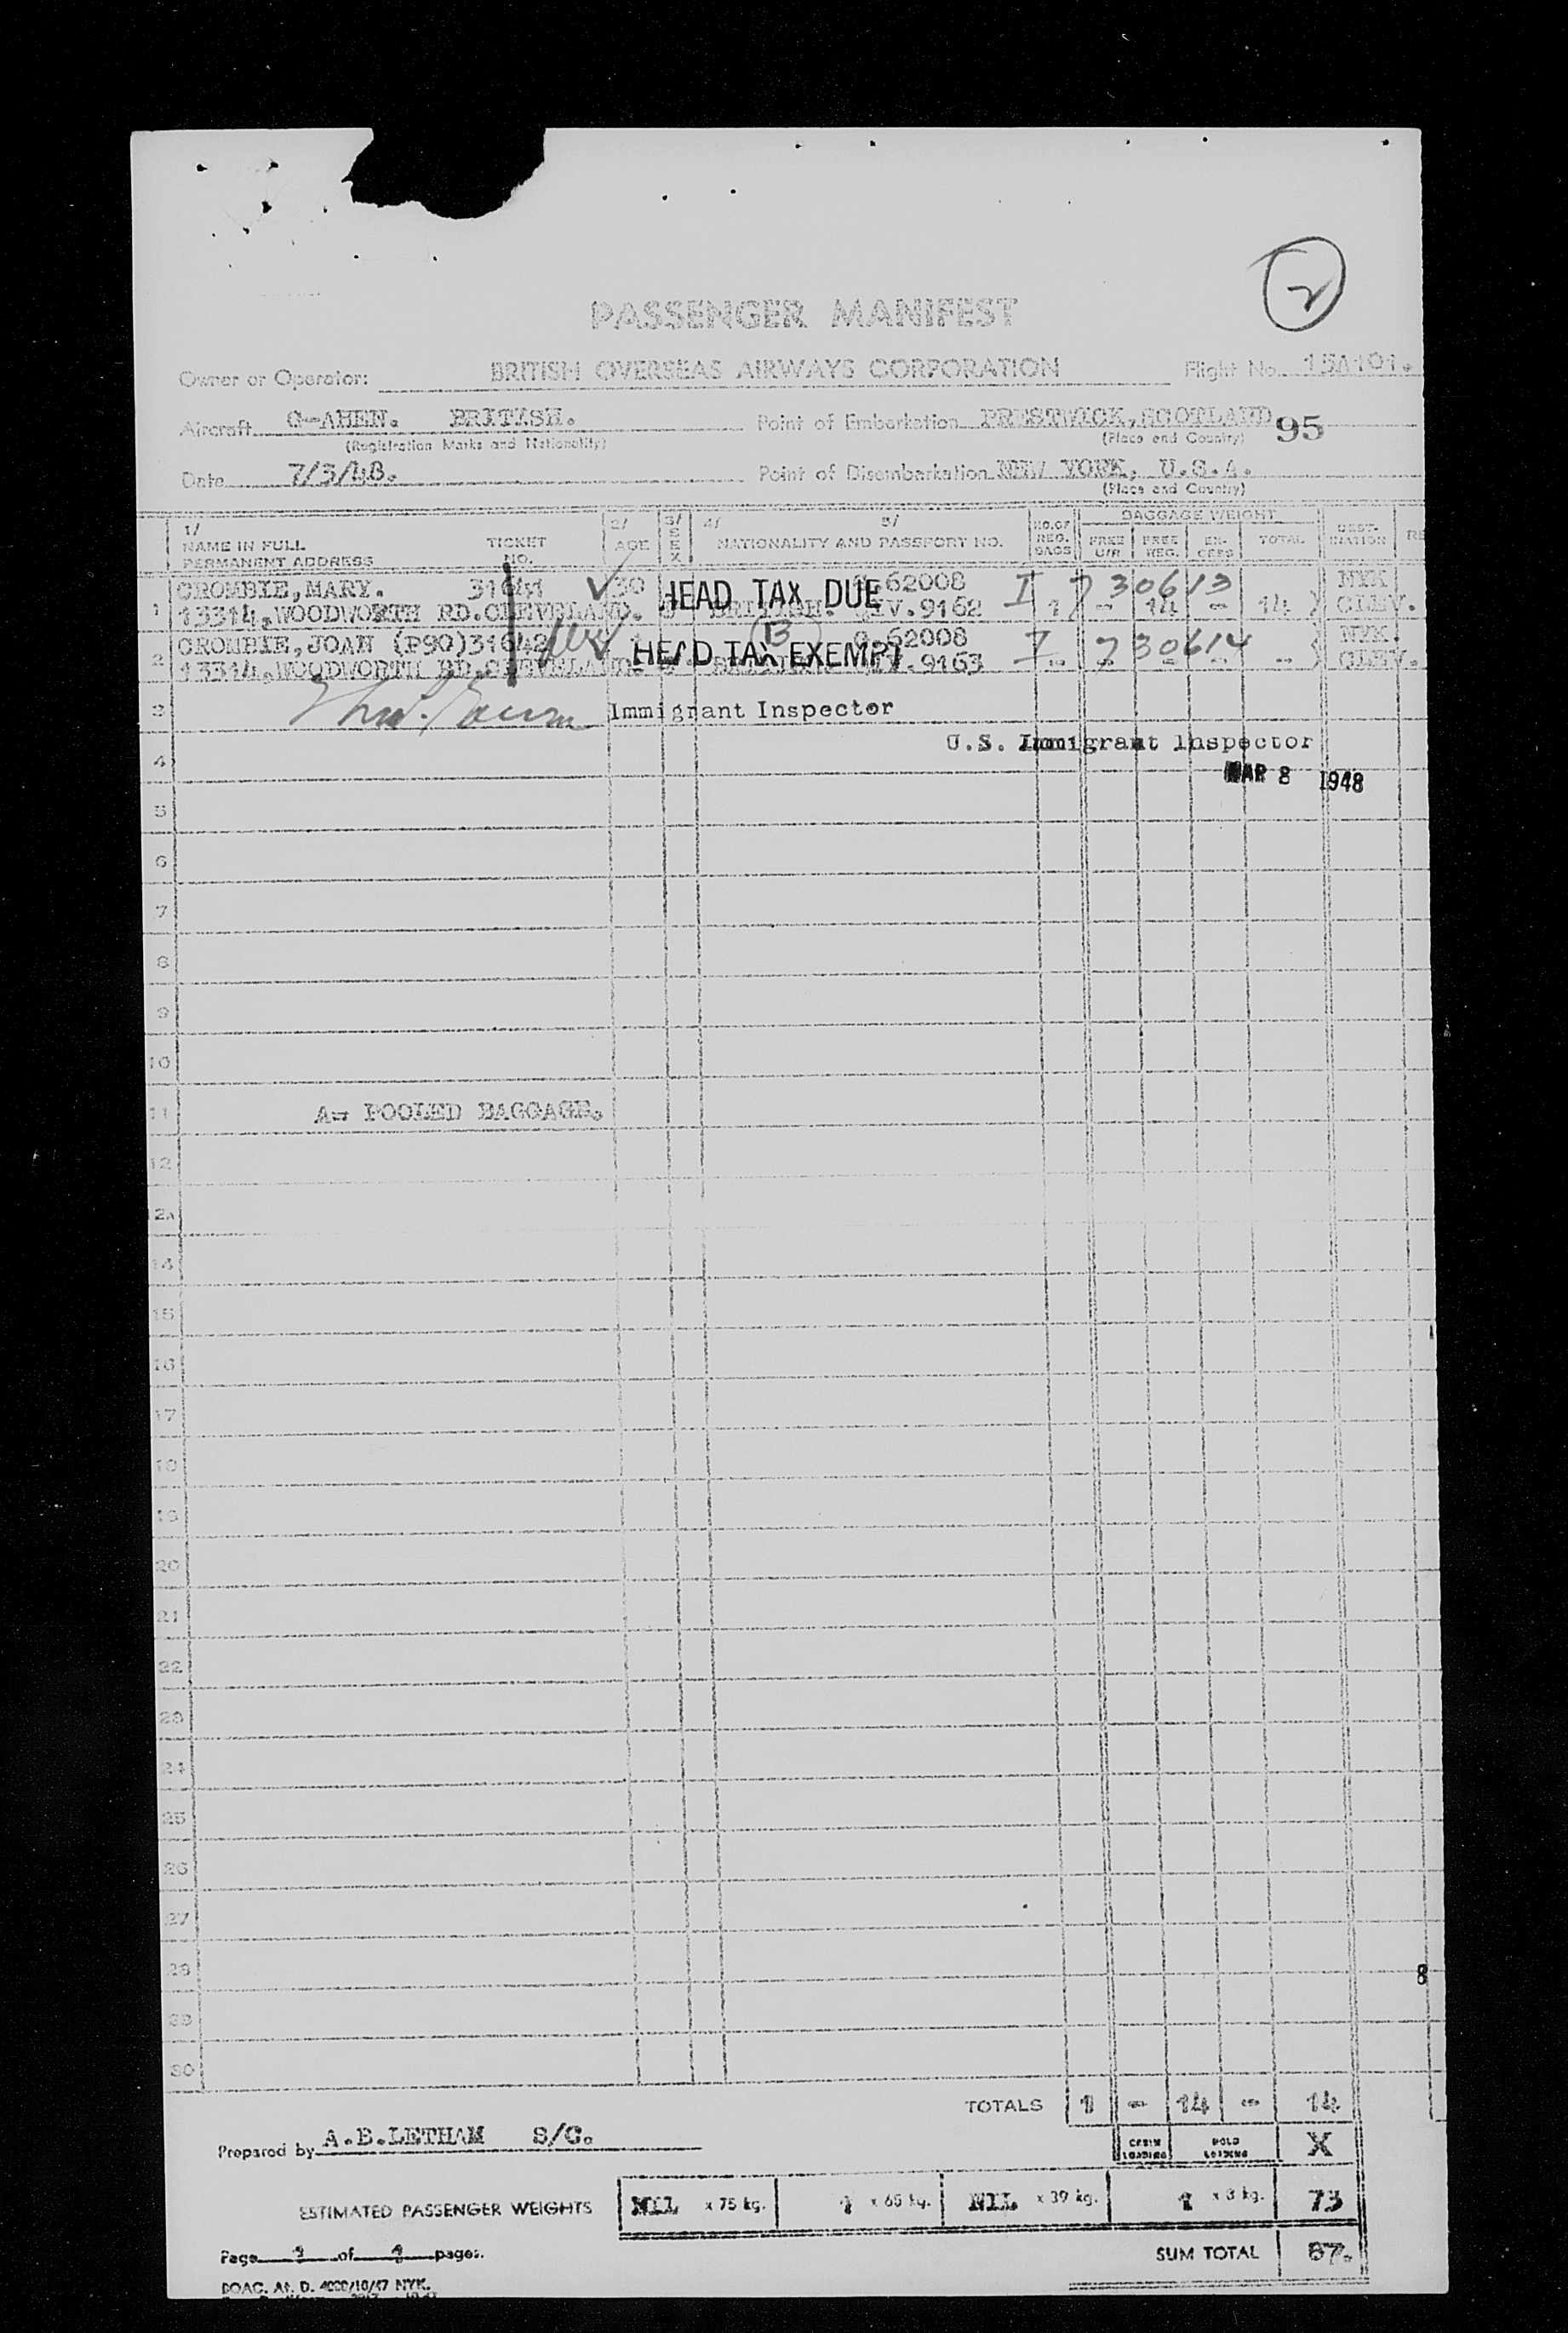 2
PASSENGER MANIFEST
Owner or Operator: BRITISH OVERSEAS AIRWAYS CORPORATION Flight No. 15A101.
Aircraft G-AHEN. BRITISH. Point of Embarkation PRESTWICK, SCOTLAND 95
(Registration Marks and Nationality) (Place and Country)
Date 7/3/48. Point of Disembarkation NEW YORK, U.S.A.
(Place and Country)
1/ NAME IN FULL PERMANENT ADDRESS TICKET NO. 2/ AGE 3/ SEX 4/ 5/ NATIONALITY AND PASSPORT NO. NO. OF REG. BAGS BAGGAGE WEIGHT FREE U/R FREE REG. EX-CESS TOTAL DEST-INATION RE
1 CROMBIE, MARY. 31641 30 HEAD TAX DUE 62008 I 730613 NYK
13314, WOODWORTH RD. CLEVELAND. BRITISH. 9162 1 - 14 - 14 CLEV.
2 CROMBIE, JOAN (P90) 31642 13 62008 I 730614 NYK.
13314, WOODWORTH RD. CLEVELAND. HEAD TAX EXEMPT 9163 - - - - - CLEV.
3 Immigrant Inspector
U.S. Immigrant Inspector
4 MAR 8 1948
5
6
7
8
9
10
11 A- POOLED BAGGAGE.
12
12A
14
15
16
17
18
19
20
21
22
23
24
25
26
27
28 8
29
30
TOTALS 1 - 14 - 14
Prepared by A.B.LETHAM S/C. CABIN LOADING HOLD LOADING X
ESTIMATED PASSENGER WEIGHTS NIL x 75 kg. 1 x 65 kg. NIL x 39 kg. 1 x 8 kg. 73
Page of pages. SUM TOTAL 87.
BOAC. Af. D. 4000/10/47 NYK.